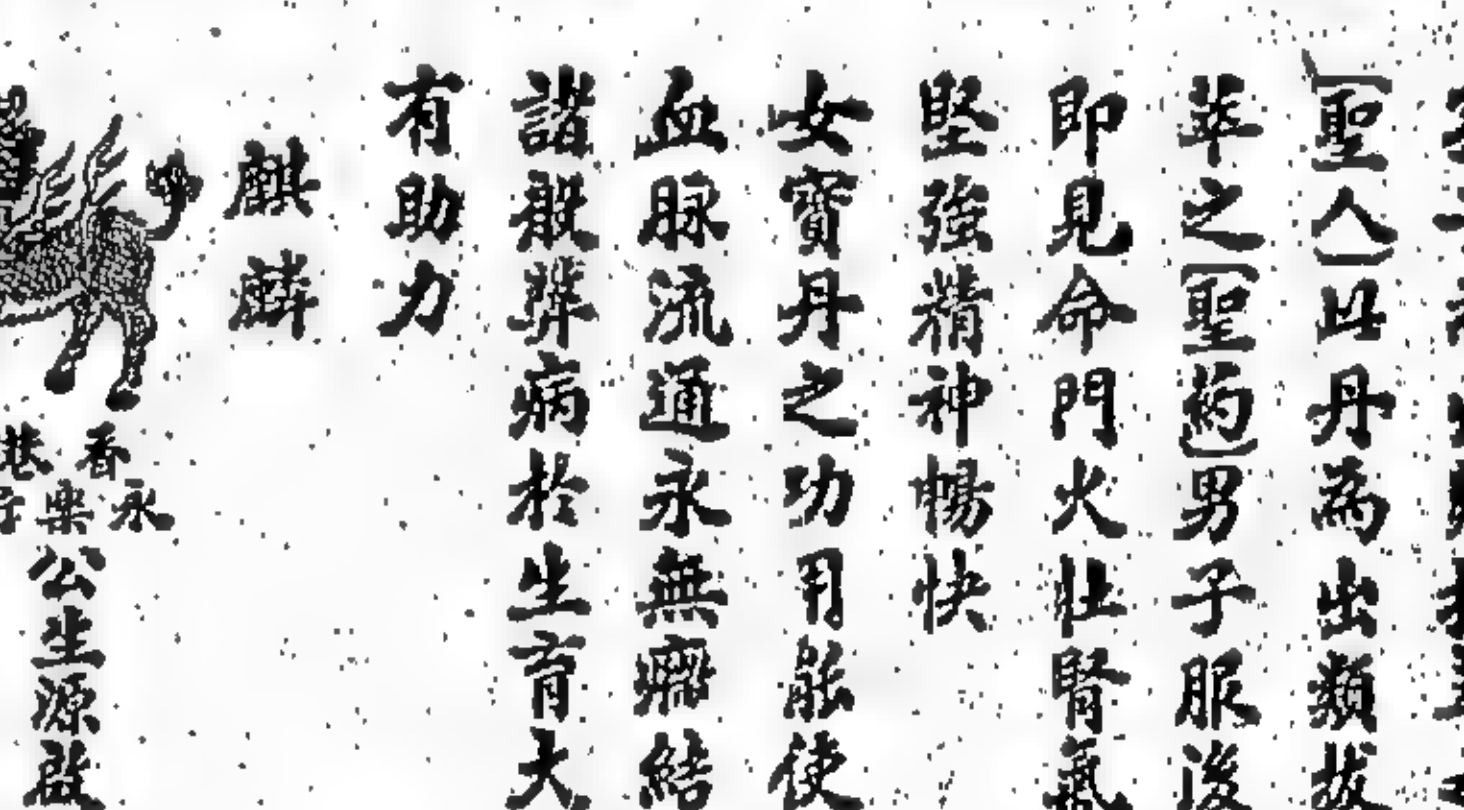 聖人此丹為出類拔
萃之聖药男子服後
即見命門火壯腎氣
堅強精神暢快
女寶丹之功用能使
血脉流通永無瘀結
諸般弊病於生育大
有助力
麒麟
香港
永樂
公生源啟